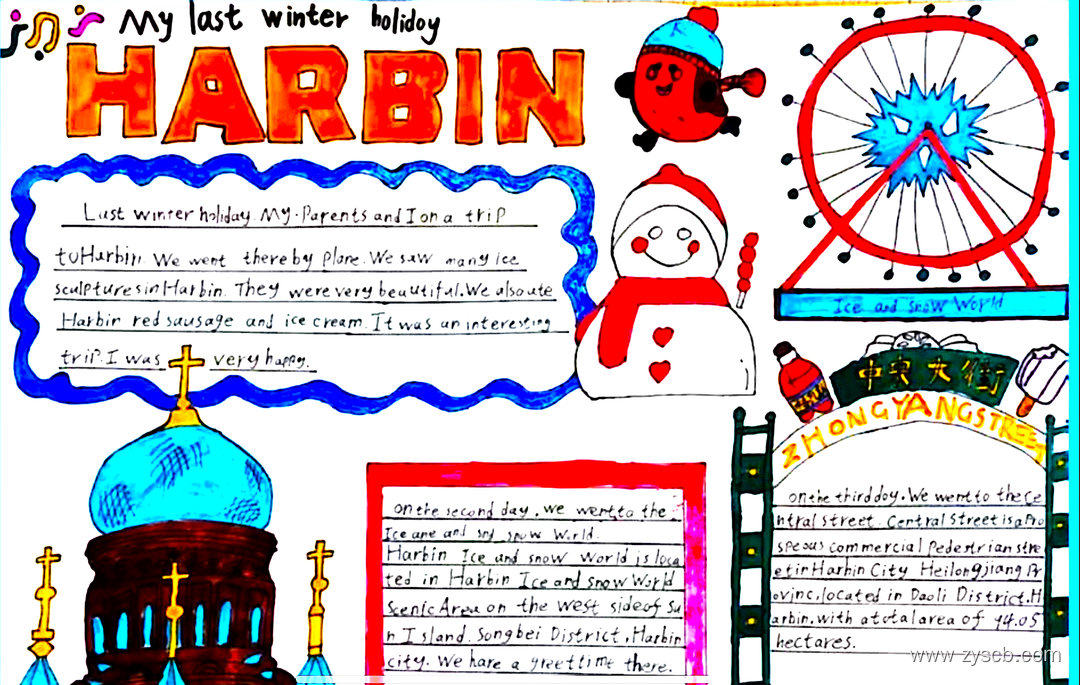 My last winter holiday
HARBIN
Last winter holiday. My. Parents and I on a trip
to Harbin. We went there by plane. We saw many ice
sculptures in Harbin. They were very beautiful. We also ate
Harbin red sausage and ice cream. It was an interesting
trip. I was very happy.
Ice and Snow World
中央大街
ZHONGYANGSTREET
on the second day, we went to the
Ice and snow World.
Harbin Ice and snow World is loca
ted in Harbin Ice and Snow World
Scenic Area on the west side of Su
n Island. Songbei District, Harbin
city. We hare a greet time there.
on the third day. We went to the Ce
ntral street. Central Street is a Pro
speous commercial Pedestrian stre
et in Harbin City Heilongjiang Pr
ovinc, located in Daoli District, H
arbin, with a total area of 94.05
hectares.
www.zyseb.com